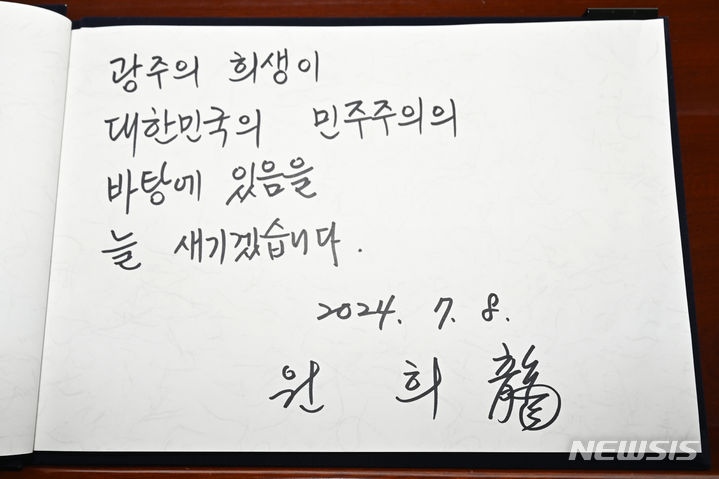 광주의 희생이
대한민국의 민주주의의
바탕에 있음을
늘 새기겠습니다.
2024. 7. 8.
원 희 龍
NEWSIS